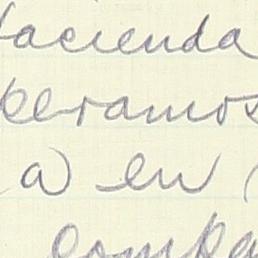 Hacienda
peramos
a en
compa